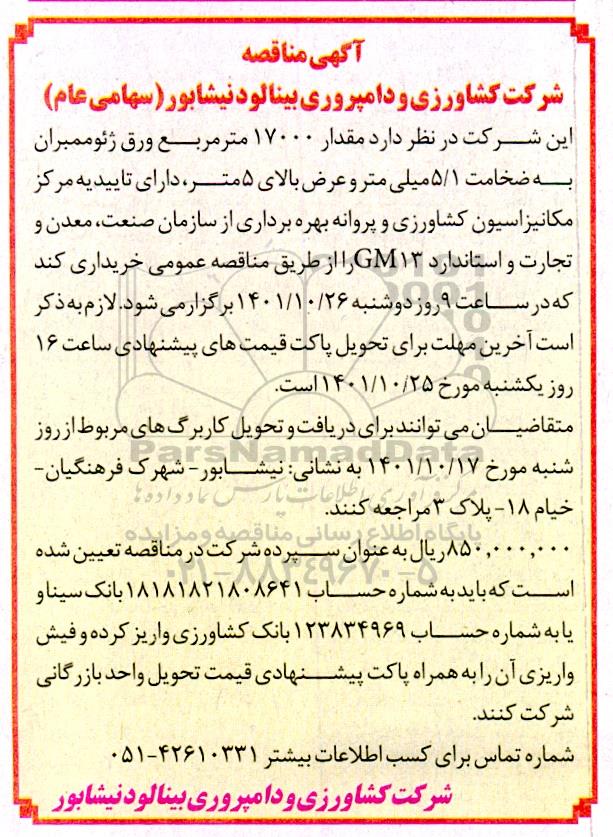 آگهی مناقصه
شرکت کشاورزی و دامپروری بینالود نیشابور (سهامی عام)
این شرکت در نظر دارد مقدار ۱۷۰۰۰ مترمربع ورق ژئوممبران
به ضخامت ۵/۱ میلی متر و عرض بالای ۵ متر، دارای تاییدیه مرکز
مکانیزاسیون کشاورزی و پروانه بهره برداری از سازمان صنعت، معدن و
تجارت و استاندارد GM۱۳ را از طریق مناقصه عمومی خریداری کند
که در ساعت ۹ روز دوشنبه ۱۴۰۱/۱۰/۲۶ برگزار می شود. لازم به ذکر
است آخرین مهلت برای تحویل پاکت قیمت های پیشنهادی ساعت ۱۶
روز یکشنبه مورخ ۱۴۰۱/۱۰/۲۵ است.
متقاضیان می توانند برای دریافت و تحویل کاربرگ های مربوط از روز
شنبه مورخ ۱۴۰۱/۱۰/۱۷ به نشانی: نیشابور- شهرک فرهنگیان-
خیام ۱۸- پلاک ۳ مراجعه کنند.
۸۵۰,۰۰۰,۰۰۰ ریال به عنوان سپرده شرکت در مناقصه تعیین شده
است که باید به شماره حساب ۱۸۱۸۱۸۲۱۸۰۸۶۴۱ بانک سینا و
یا به شماره حساب ۱۲۳۸۳۴۹۶۹ بانک کشاورزی واریز کرده و فیش
واریزی آن را به همراه پاکت پیشنهادی قیمت تحویل واحد بازرگانی
شرکت کنند.
شماره تماس برای کسب اطلاعات بیشتر ۴۲۶۱۰۳۳۱-۰۵۱
شرکت کشاورزی و دامپروری بینالود نیشابور
ParsNamadData
مرکز فرآوری اطلاعات پارس نماد داده ها
پایگاه اطلاع رسانی مناقصه و مزایده
۰۲۱-۸۸۳۴۹۶۷۰-۵